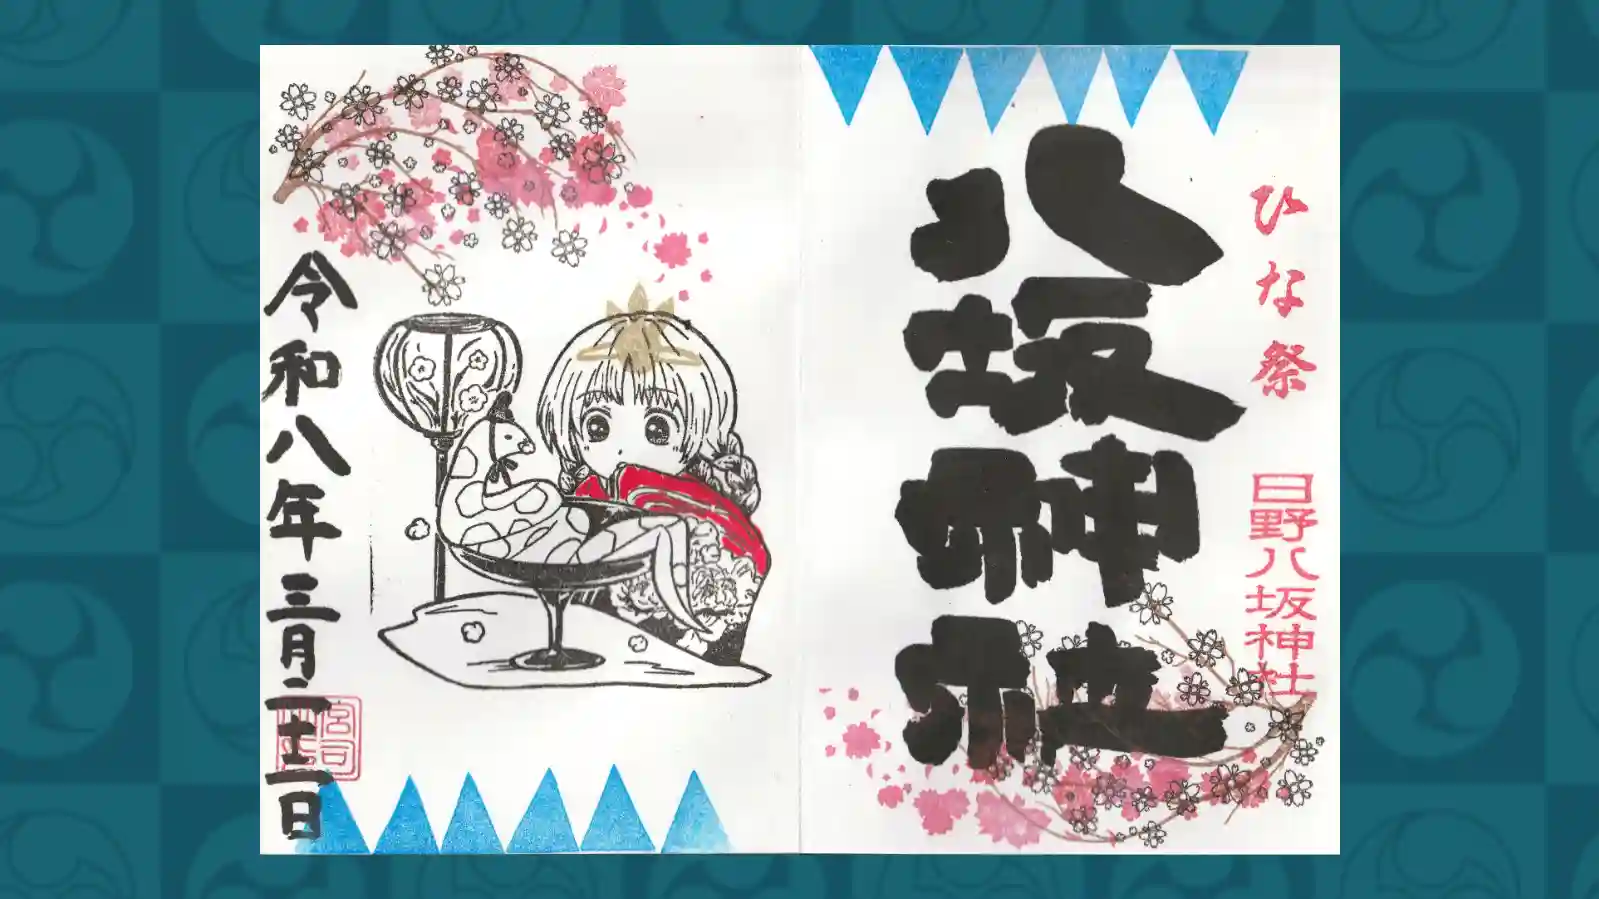 ひな祭
日野八坂神社
八坂神社
令和八年三月二十二日
宮司